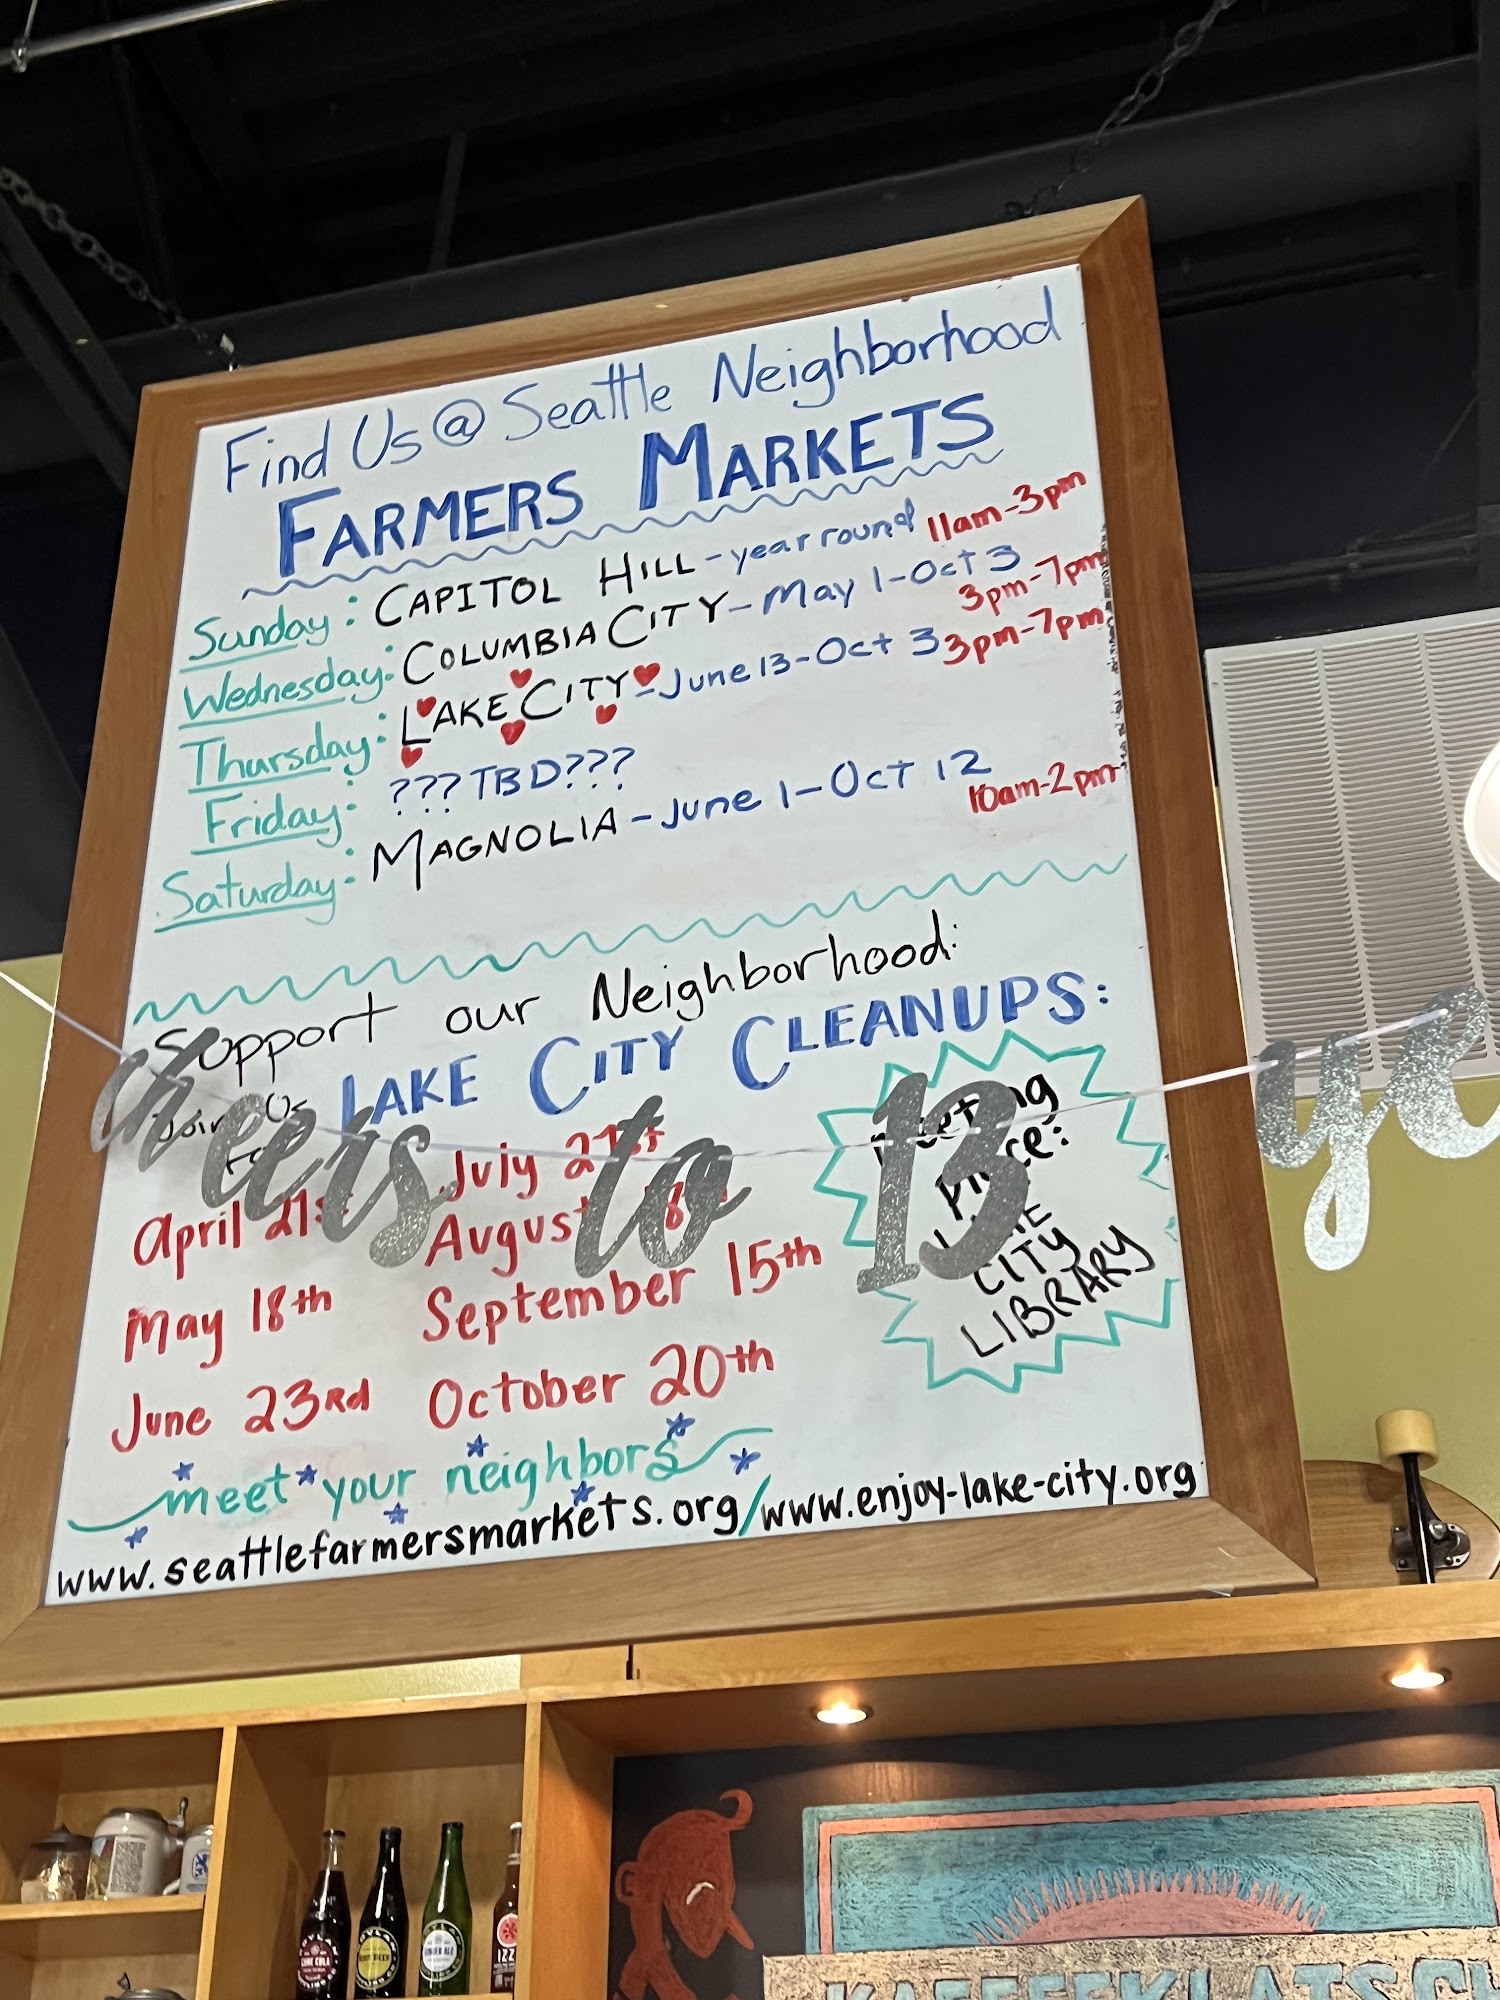 Find Us @ Seattle Neighborhood
FARMERS MARKETS
Sunday: CAPITOL HILL - year round 11am-3pm
Wednesday: COLUMBIA CITY - May 1-Oct 3
3pm-7pm
Thursday: LAKE CITY - June 13-Oct 3 3pm-7pm
Friday: ??? TBD???
Saturday: MAGNOLIA - June 1-Oct 12
10am-2pm
Support our Neighborhood:
Join Us
LAKE CITY CLEANUPS:
cheers to 13 ye
April 21st
May 18th
June 23rd
July 21st
August 18
September 15th
October 20th
Meeting
Place:
LAKE
CITY
LIBRARY
meet your neighbors
www.seattlefarmersmarkets.org/www.enjoy-lake-city.org
IZZE
KAFFEEKLATSCH